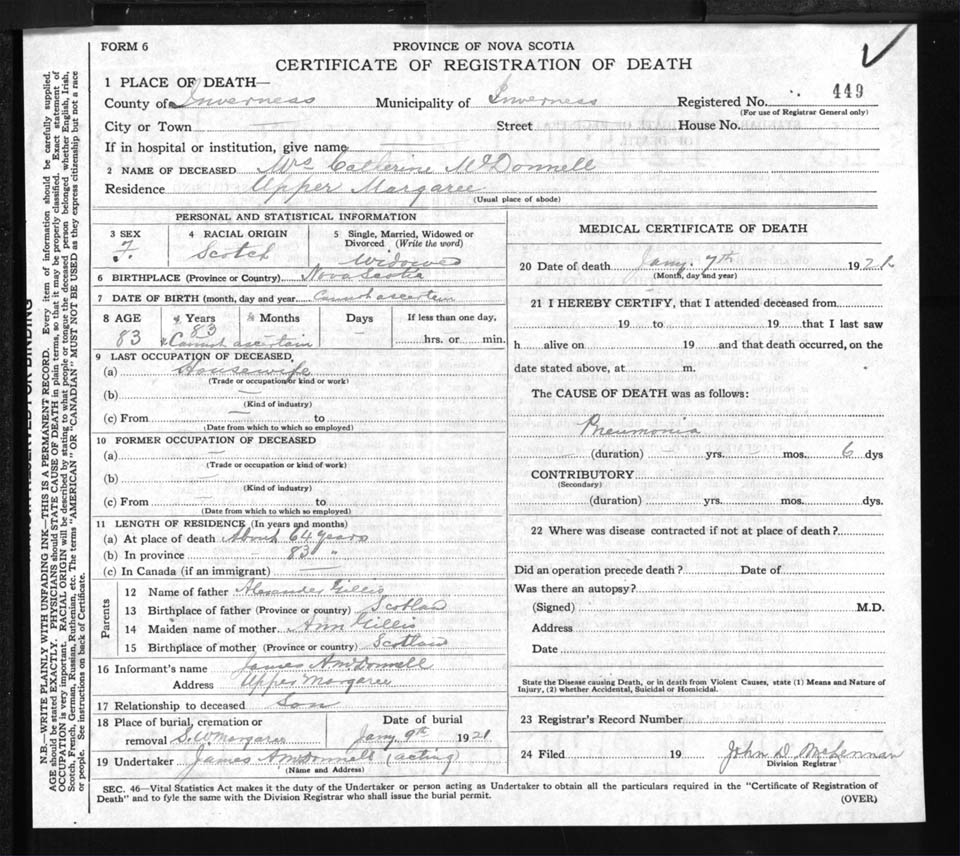 FORM 6
PROVINCE OF NOVA SCOTIA
CERTIFICATE OF REGISTRATION OF DEATH
1 PLACE OF DEATH—
449
County of Inverness Municipality of Inverness Registered No.
(For use of Registrar General only)
City or Town Street House No.
If in hospital or institution, give name
2 NAME OF DECEASED Mrs Catherine McDonnell
Residence Upper Margaree
(Usual place of abode)
PERSONAL AND STATISTICAL INFORMATION
3 SEX 4 RACIAL ORIGIN 5 Single, Married, Widowed or Divorced (Write the word)
F. Scotch Widowed
6 BIRTHPLACE (Province or Country) Nova Scotia
7 DATE OF BIRTH (month, day and year Cannot ascertain
8 AGE Years Months Days If less than one day,
83 83 Cannot ascertain — hrs. or min.
9 LAST OCCUPATION OF DECEASED
(a) Housewife
(Trade or occupation or kind or work)
(b) —
(Kind of industry)
(c) From — to
(Date from which to which so employed)
10 FORMER OCCUPATION OF DECEASED
(a) —
(Trade or occupation or kind of work)
(b) —
(Kind of industry)
(c) From — to
(Date from which to which so employed)
11 LENGTH OF RESIDENCE (In years and months)
(a) At place of death About 64 years
(b) In province 83 "
(c) In Canada (if an immigrant) —
Parents
12 Name of father Alexander Gillis
13 Birthplace of father (Province or country) Scotland
14 Maiden name of mother Ann Gillis
15 Birthplace of mother (Province or country) Scotland
16 Informant's name James A McDonnell
Address Upper Margaree
17 Relationship to deceased Son
18 Place of burial, cremation or removal S. W Margaree
Date of burial
Jany 9th 1921
19 Undertaker James A McDonnell (acting)
(Name and Address)
MEDICAL CERTIFICATE OF DEATH
20 Date of death Jany. 7th 1921
(Month, day and year)
21 I HEREBY CERTIFY, that I attended deceased from
19 to 19 that I last saw
h alive on 19 and that death occurred, on the
date stated above, at m.
The CAUSE OF DEATH was as follows:
Pneumonia
(duration) — yrs. — mos. 6 dys
CONTRIBUTORY
(Secondary)
(duration) yrs. mos. dys.
22 Where was disease contracted if not at place of death?
Did an operation precede death? Date of
Was there an autopsy?
(Signed) M.D.
Address
Date
State the Disease causing Death, or in death from Violent Causes, state (1) Means and Nature of
Injury, (2) whether Accidental, Suicidal or Homicidal.
23 Registrar's Record Number
24 Filed 19 John D. McLennan
Division Registrar
SEC. 46—Vital Statistics Act makes it the duty of the Undertaker or person acting as Undertaker to obtain all the particulars required in the "Certificate of Registration of
Death" and to fyle the same with the Division Registrar who shall issue the burial permit.
(OVER)
N.B.—WRITE PLAINLY WITH UNFADING INK—THIS IS A PERMANENT RECORD. Every item of information should be carefully supplied.
AGE should be stated EXACTLY. PHYSICIANS should STATE CAUSE OF DEATH in plain terms, so that it may be properly classified. Exact statement of
OCCUPATION is very important. RACIAL ORIGIN will be described by stating to what people or tongue the deceased person belonged whether English, Irish,
Scotch, French, German, Russian, Ruthenian, etc. The terms "AMERICAN" OR "CANADIAN" MUST NOT BE USED as they express citizenship but not a race
or people. See instructions on back of Certificate.